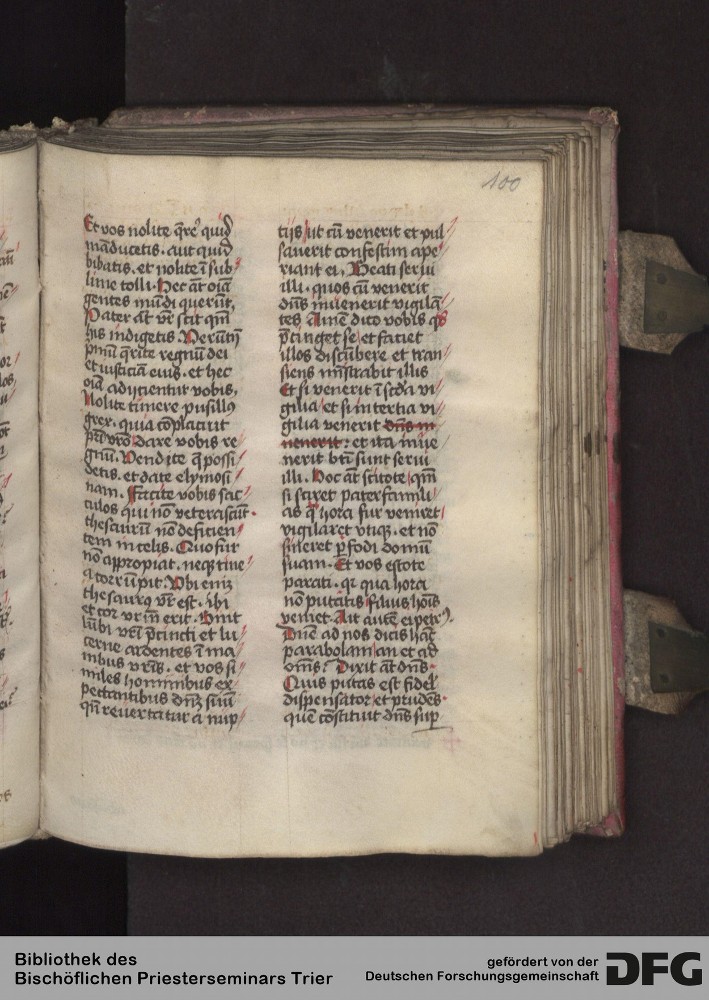 100
Et vos nolite q̄rer̄ quid
māducetis. aut quid
bibatis. et nolite ī sub
lime tolli. Hec āt oīa
gentes mūdi querūt,
Pater āt vr̄ scit qm̄
his indigetis. Verūtn̄
pmū q̄rite regnū dei
et iusticiā eius. et hec
oīa adijcientur vobis,
Nolite timere pusillꝰ
grex. quia cōplacuit
pr̄i vrō dare vobis re
gnū. Vendite q̄ possi
detis. et date elymosi
nam. Facite vobis sac
culos qui nō veterascūt.
thesaurū nō deficien
tem in celis. Quo fur
nō appropiat. neq tine
a corrūpit. Vbi enīz
thesaurꝰ vr̄ est. ibi
et cor vr̄m erit. Sint
lūbi vr̄i p̄cincti et lu
cerne ardentes ī ma
nibus vr̄is. et vos si
miles hominibus ex
pectantibus dn̄z suū
qn̄ reuertatur a nup
tijs ut cū venerit et pul
sauerit confestim ape
riant ei. Beati serui
illi. quos cū venerit
dn̄s inuenerit vigilā
tes Amē dico vobis qꝫ
p̄cinget se et faciet
illos discūbere et tran
siens mīstrabit illis
Et si venerit ī scda vi
gilia et si in tertia vi
gilia venerit dn̄s in
uenerit: et ita inue
nerit bt̄i sunt serui
illi. Hoc āt scitote qm̄
si sciret pater famili
as q̄ hora fur veniret
vigilaret vtiqꝫ. et nō
sineret ꝑfodi domū
suam. Et vos estote
parati. qr qua hora
nō putatis filius hoīs
veniet. Ait autē ei petrꝰ.
Dn̄e ad nos dicis hāc
parabolam an et ad
om̄s? Dixit āt dn̄s.
Quis putas est fidel
dispensator et prudēs.
quē cōstituit dn̄s suꝑ
Bibliothek des
Bischöflichen Priesterseminars Trier
gefördert von der
Deutschen Forschungsgemeinschaft
DFG